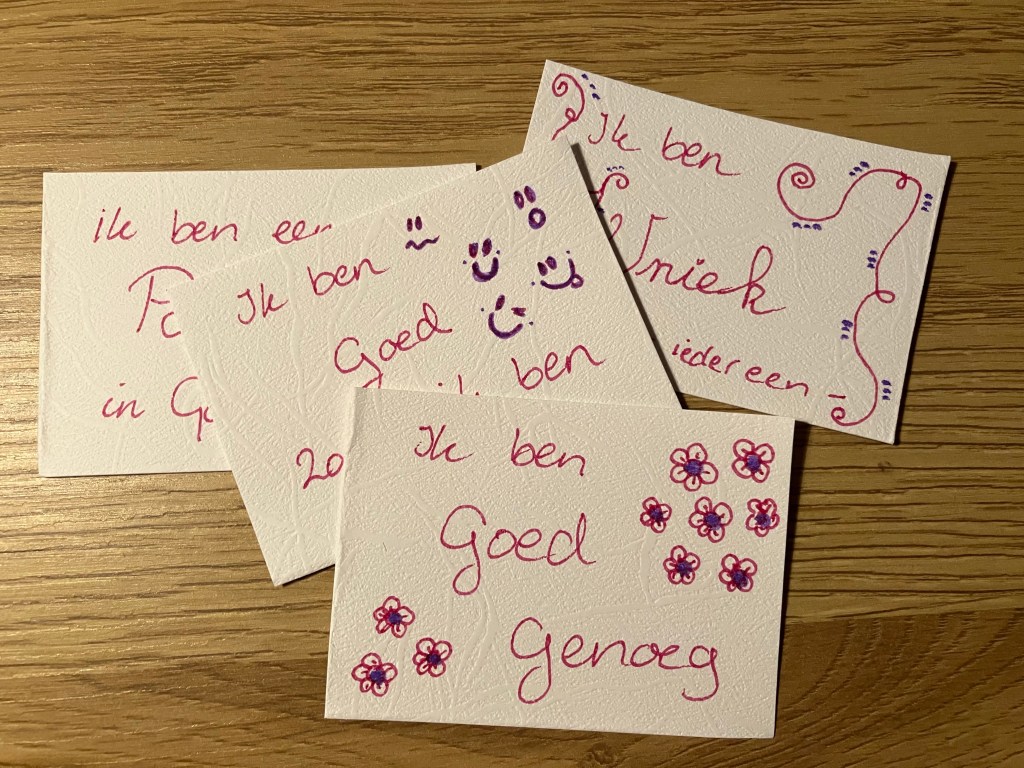 ik ben een
in
Ik ben
Goed
ik ben
Ik ben
Uniek
iedereen
Ik ben
Goed
Genoeg